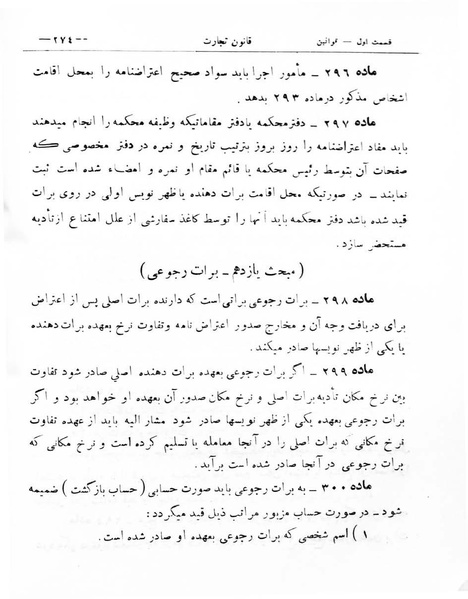 قسمت اول — قوانین    قانون تجارت    --۲۷٤—
ماده ۲۹٦ ـ مأمور اجرا باید سواد صحیح اعتراضنامه را بمحل اقامت
اشخاص مذکور درماده ۲۹۳ بدهد .
ماده ۲۹۷ ـ دفترمحکمه یادفتر مقاماتیکه وظیفه محکمه را انجام میدهند
باید مفاد اعتراضنامه را روز بروز بترتیب تاریخ و نمره در دفتر مخصوصی که
صفحات آن بتوسط رئیس محکمه یا قائم مقام او نمره و امضاء شده است ثبت
نمایند ـ در صورتیکه محل اقامت برات دهنده یاظهر نویس اولی در روی برات
قید شده باشد دفتر محکمه باید آنها را توسط کاغذ سفارشی از علل امتناع ازتأدیه
مستحضر سازد .
( مبحث یازدهم ـ برات رجوعی )
ماده ۲۹۸ ـ برات رجوعی براتی است که دارنده برات اصلی پس از اعتراض
برای دریافت وجه آن و مخارج صدور اعتراض نامه وتفاوت نرخ بعهده برات دهنده
یا یکی از ظهر نویسها صادر میکند .
ماده ۲۹۹ ـ اگر برات رجوعی بعهده برات دهنده اصلی صادر شود تفاوت
بین نرخ مکان تأدیه برات اصلی و نرخ مکان صدور آن بعهده او خواهد بود و اگر
برات رجوعی بعهده یکی از ظهر نویسها صادر شود مشار الیه باید از عهده تفاوت
نرخ مکانی که برات اصلی را در آنجا معامله یا تسلیم کرده است و نرخ مکانی که
برات رجوعی در آنجا صادر شده است برآید .
ماده ۳۰۰ ـ به برات رجوعی باید صورت حسابی ( حساب بازگشت ) ضمیمه
شود ـ در صورت حساب مزبور مراتب ذیل قید میگردد :
۱ ) اسم شخصی که برات رجوعی بعهده او صادر شده است .